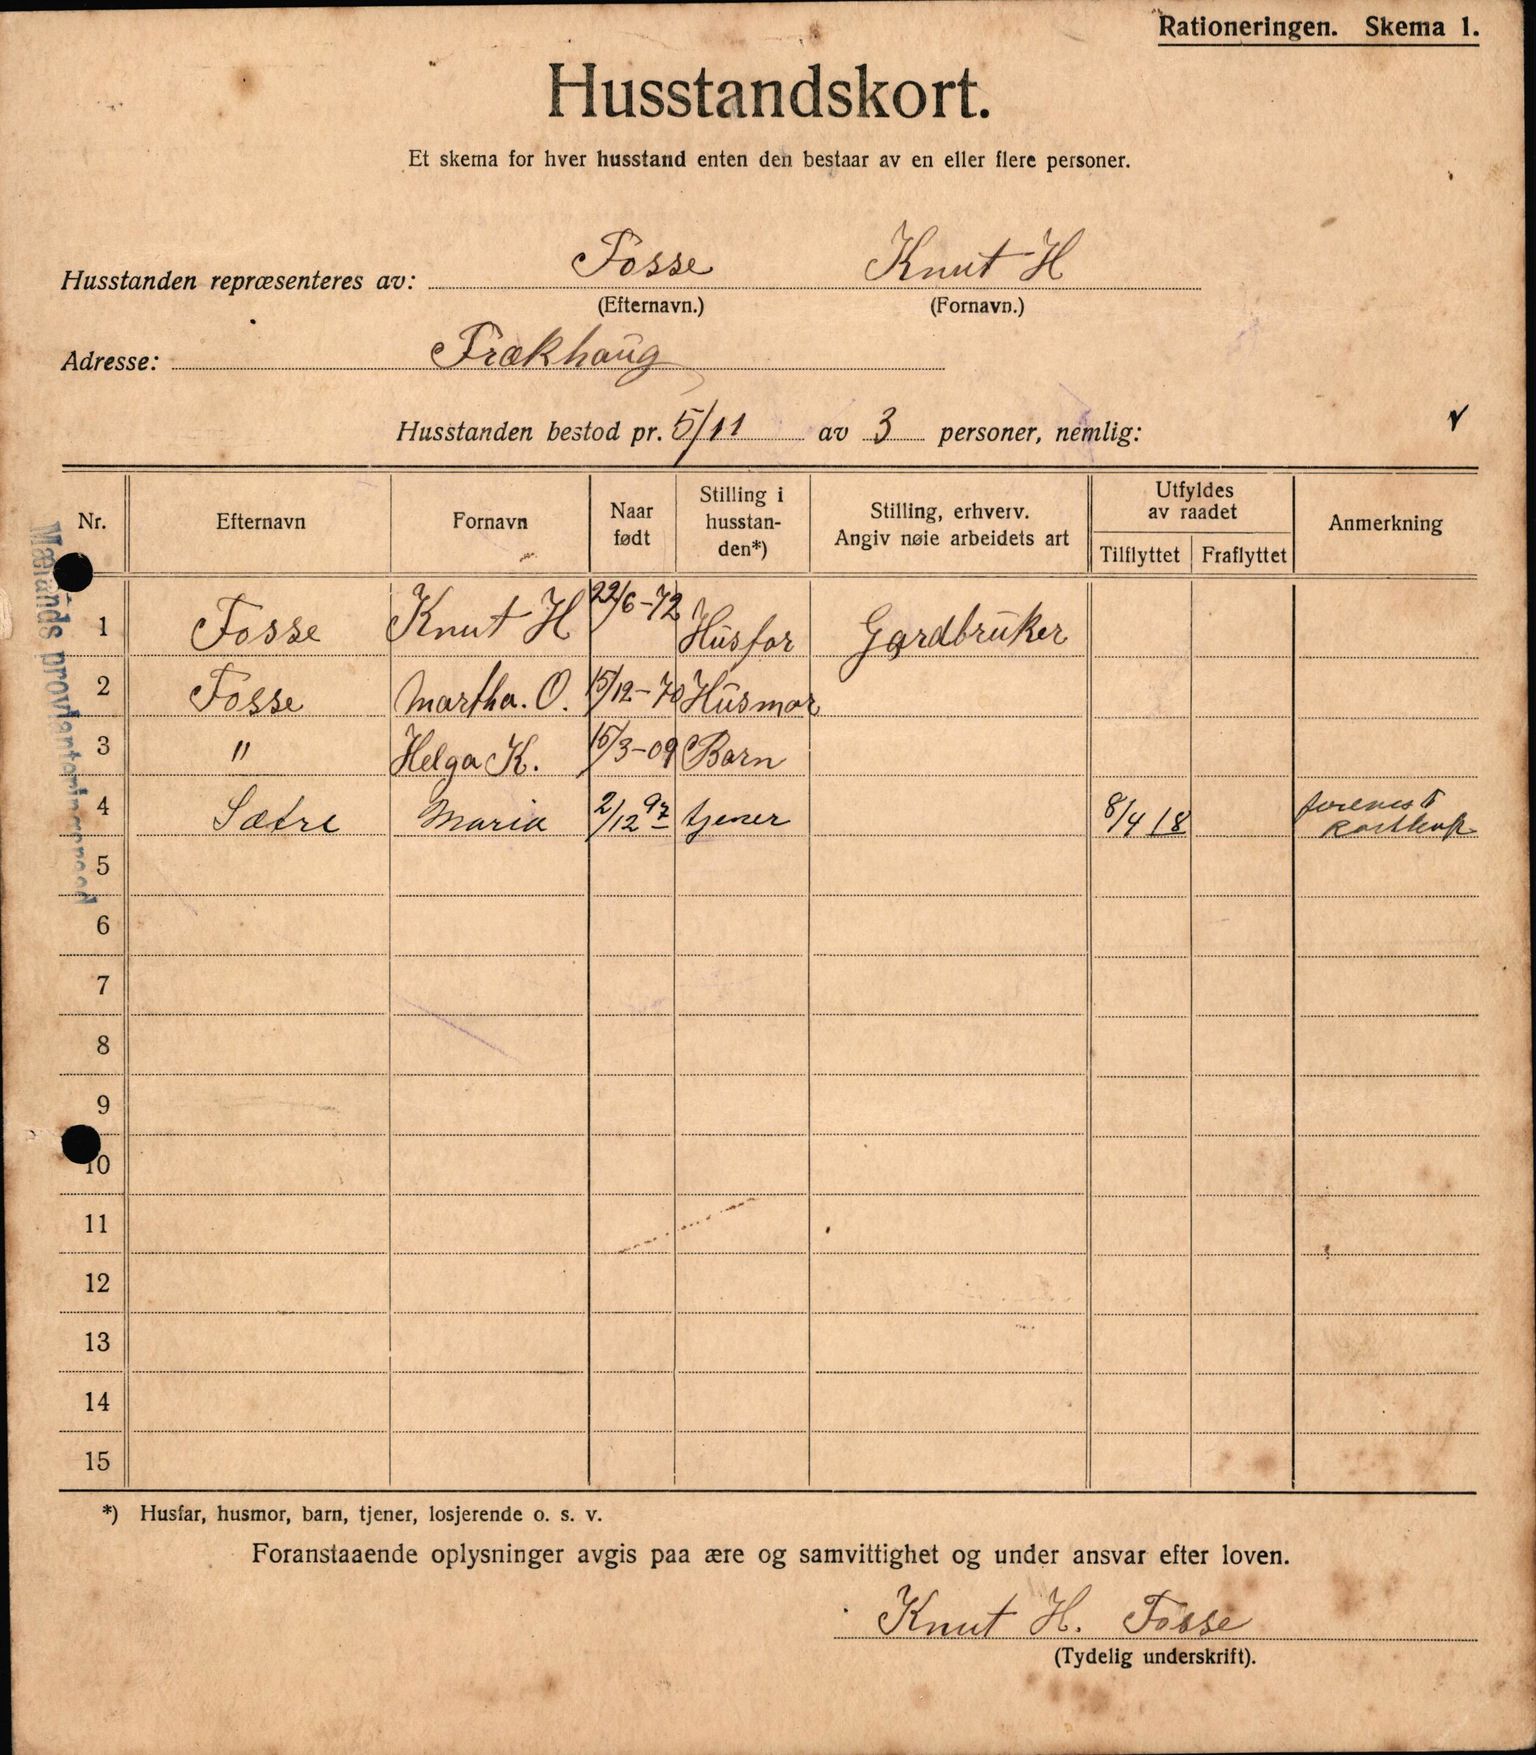 Rationeringen. Skema 1.
Husstandskort.
Et skema for hver husstand enten den bestaar av en eller flere personer.
Husstanden repræsenteres av: Fosse Knut H
(Efternavn.) (Fornavn.)
Adresse: Frækhaug
Husstanden bestod pr. 5/11 av 3 personer, nemlig:
Nr. Efternavn Fornavn Naar født Stilling i husstan-den*) Stilling, erhverv. Angiv nøie arbeidets art Utfyldes av raadet Tilflyttet Fraflyttet Anmerkning
1 Fosse Knut H 22/6-72 Husfar Gardbruker
2 Fosse Martha. O. 15/12-70 Husmor
3 " Helga K. 15/3-09 Barn
4 Sætre Maria 2/12 97 tjener 8/4 18
5
6
7
8
9
10
11
12
13
14
15
Mælands proviantering­sraad
*) Husfar, husmor, barn, tjener, losjerende o. s. v.
Foranstaaende oplysninger avgis paa ære og samvittighet og under ansvar efter loven.
Knut H. Fosse
(Tydelig underskrift).